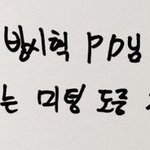 방시혁 PD님
는 미팅 도중